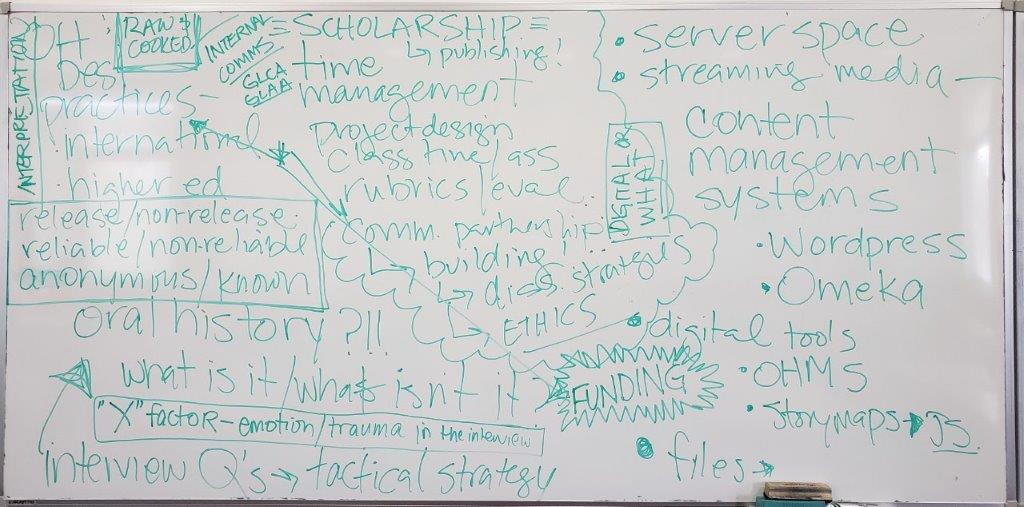 INTERPRETATION
OH:
Best
practices -
· international
· higher ed
RAW &
COOKED
INTERNAL
COMMS
GLCA
GLAA
release/non-release.
reliable/non-reliable
anonymous/known
Oral history?!!
what is it/what isn't it
"X" factor - emotion/trauma in the interview
interview Q's → tactical strategy
= SCHOLARSHIP =
↳ publishing!
time
management
project design
class time/ass
rubrics/eval
Comm. partnership
↳ building!
↳ diss. strategies
↳ ETHICS
FUNDING
DIGITAL OR
WHAT
· server space
· streaming media —
content
management
systems
· Wordpress
· Omeka
· digital tools
· OHMS
· Storymaps → JS.
· files →